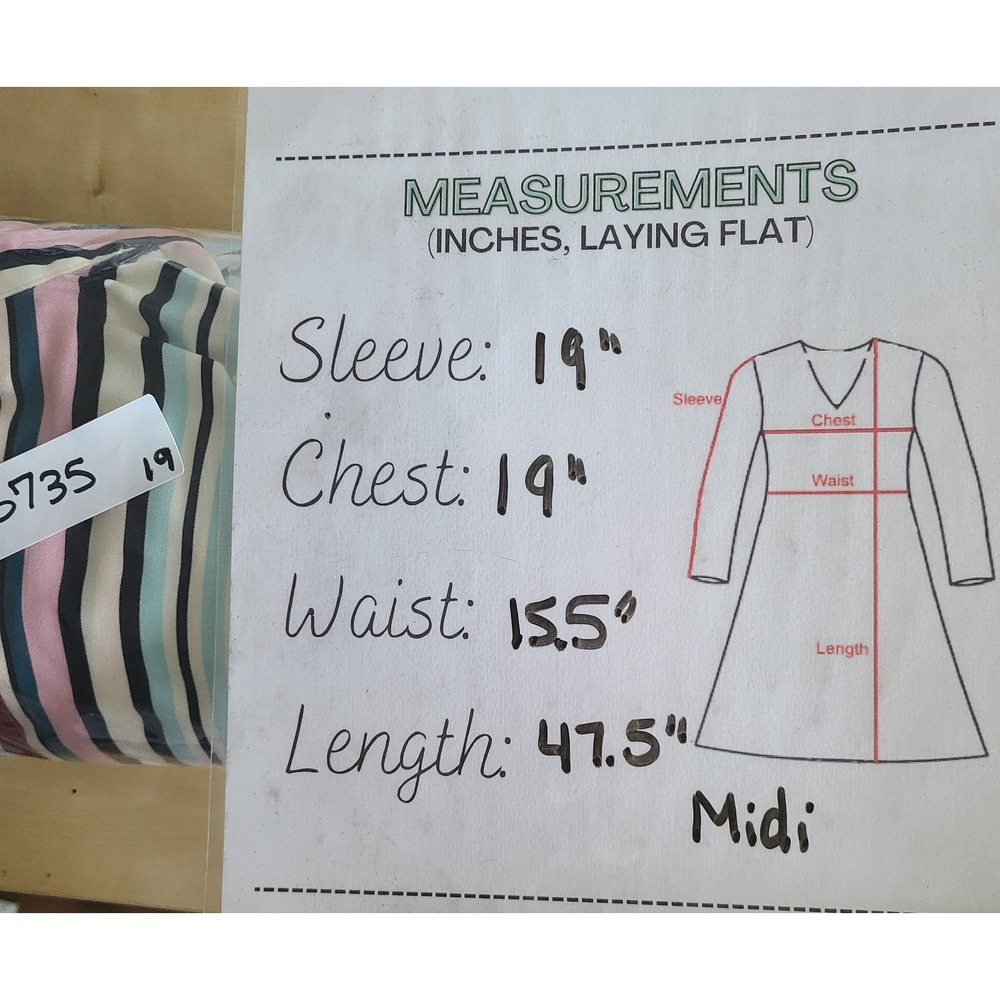 MEASUREMENTS
(INCHES, LAYING FLAT)
Sleeve: 19"
Chest: 19"
Waist: 15.5"
Length: 47.5"
Midi
Sleeve
Chest
Waist
Length
735 19